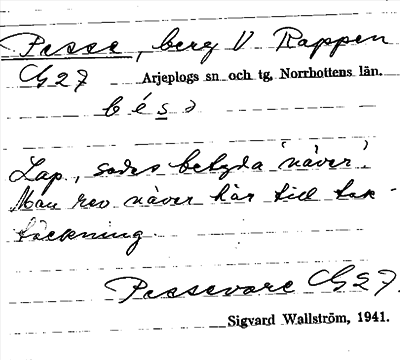 Pesse, berg V Rappen
CG27 Arjeplogs sn och tg, Norrbottens län.
b é s ə
Lap., sades betyda 'näver'.
Man rev näver här till tak-
täckning.
Pessevare CG27.
Sigvard Wallström, 1941.